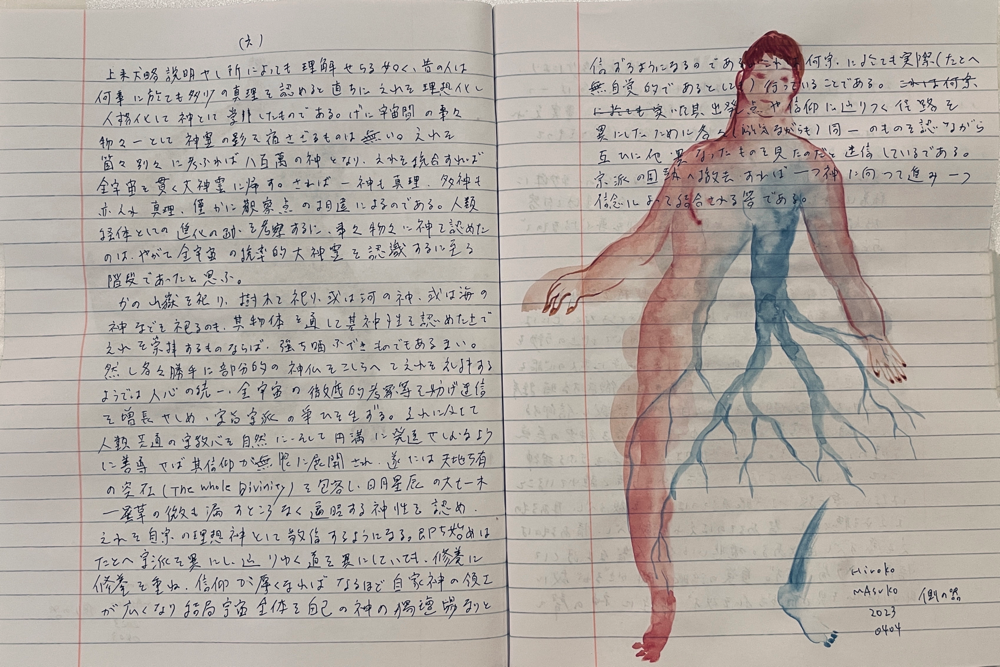 (六)
上来大略説明せし所によても理解せらる如く、昔の人は
何事に於ても多少の真理を認めると直ちにそれを理想化し
人格化して神として崇拝したものである。げに宇宙間の事々
物々一として神霊の影を宿さざるものは無い。それを
箇々別々に考ふれば八百萬の神となり、それを統合すれば
全宇宙を貫く大神霊に帰す。されば一神も真理、多神も
亦人れ真理、僅かに観察点の相違によるのである。人類
全体としての進化の跡を考察するに、事々物々に神を認めた
のは、やがて全宇宙の統率的大神霊を認識するに至る
階段であったと思ふ。
かの山嶽を祀り、樹木を祀り、或は河の神、或は海の
神などを祀るのも、其物体を通して其神性を認めた上で
それを崇拝するものならば、強ち嗤ふべきものでもあるまい。
然し各々勝手に部分的の神仏をこしらへてそれを礼拝する
ようでは人心の統一、全宇宙の徹底的考察等を妨げ迷信
を増長せしめ、宗旨宗派の争ひを生ずる。それに反して
人類普通の宗教心を自然に、そして円満に発達せしむるよう
に善導せば其信仰が無限に展開され、遂には天地万有
の実在(The whole Divinity)を包容し、日月星辰の大も一木
一草の微も漏すところなく遍照する神性を認め、
それを自宗の理想神として敬信するようになる。即ち始めは
たとへ宗派を異にし、辿りゆく道を異にしていても、修養に
修養を重ね、信仰が厚くなればなるほど自家神の領土
が広くなり結局宇宙全体を自己の神の独壇場なりと
信ずるようになるのである。これは何宗に於ても実際(たとへ
無自覚的であるとしても)行っていることである。これは何宗
に於ても実は只其出発点や信仰に辿りつく経路を
異にしたために各々(
同一のものを認めながら
互ひに他異なったものを見たのだと迷信しているである。
宗派の
撤去すれば一つ神に向つて進み一つ
信念によって結合される筈である。
Hiroko
MAsuko
2023
0404